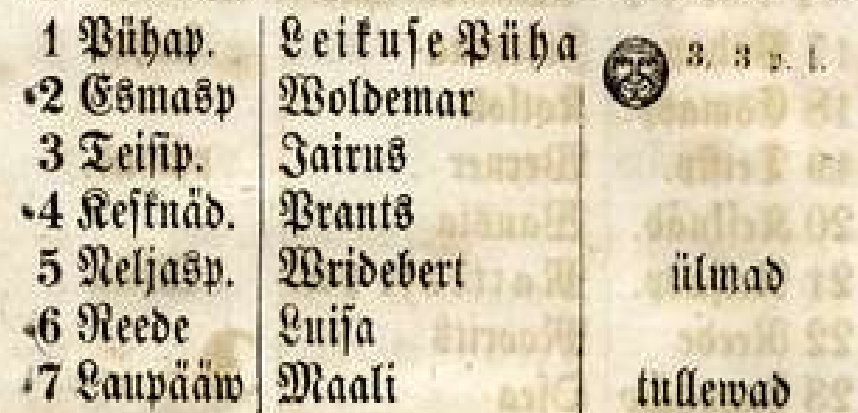 1 Pühap. Leikuse Püha 3. 3 p. l.
2 Esmasp Woldemar
3 Teisip. Jairus
4 Keſknäd. Prants
5 Neljasp. Wridebert ülmad
6 Reede Luiſa
7 Laupääw Maali tullewad